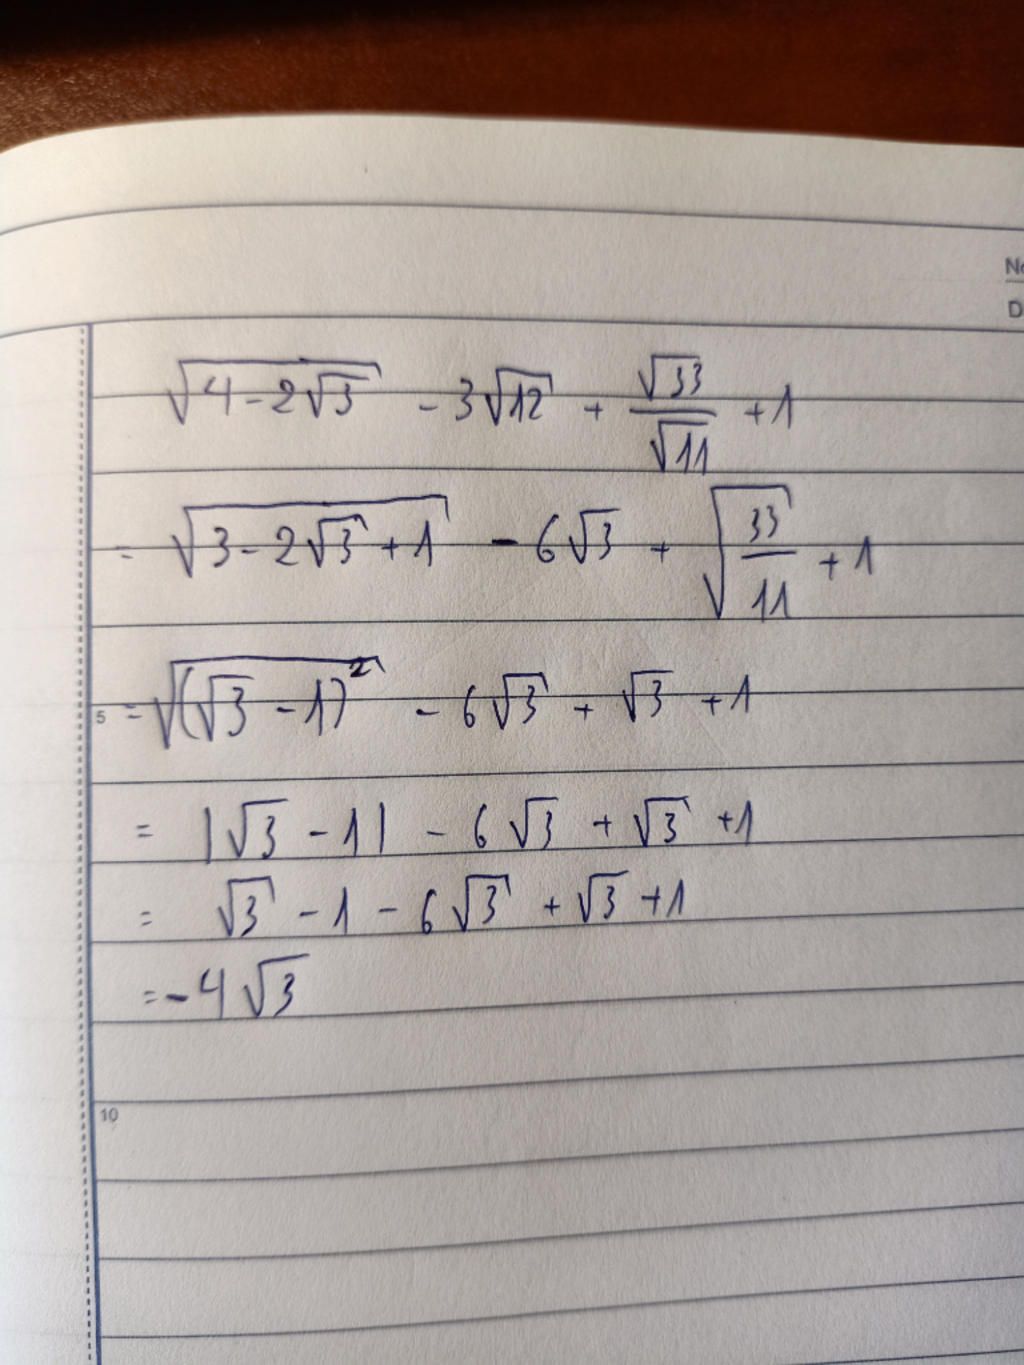 No
D
√(4-2√3) - 3√12 + √33/√11 + 1
= √(3-2√3+1) - 6√3 + √(33/11) + 1
5 = √((√3-1)²) - 6√3 + √3 + 1
= |√3-1| - 6√3 + √3 +1
= √3 - 1 - 6√3 + √3 +1
= -4√3
10